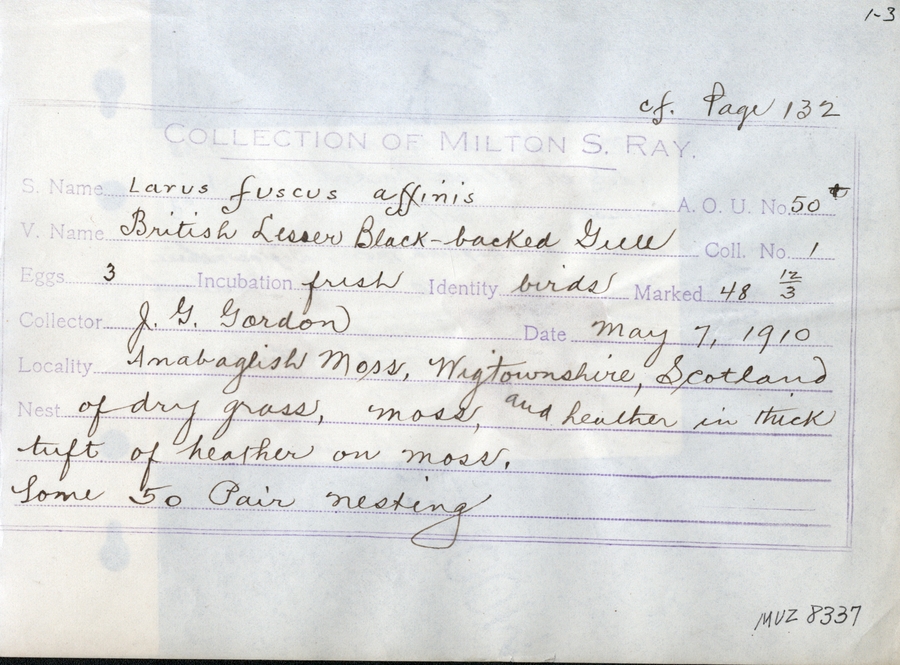 1-3
cf. Page 132
COLLECTION OF MILTON S. RAY.
S. Name Larus fuscus affinis A. O. U. No. 50+
V. Name British Lesser Black-backed Gull Coll. No. 1
Eggs 3 Incubation fresh Identity birds Marked 48 12/3
Collector J. G. Gordon Date May 7, 1910
Locality Anabaglish Moss, Wigtownshire, Scotland
Nest of dry grass, moss, and heather in thick
tuft of heather on moss.
Some 50 Pair nesting
MVZ 8337